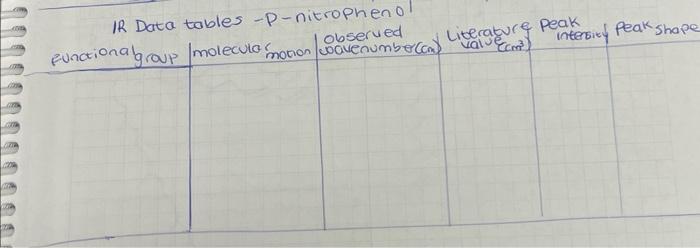 IR Data tables - P-nitrophenol
Functional group | molecular motion | observed wavenumber(cm) | Literature value (cm³) | Peak intensity | Peak shape